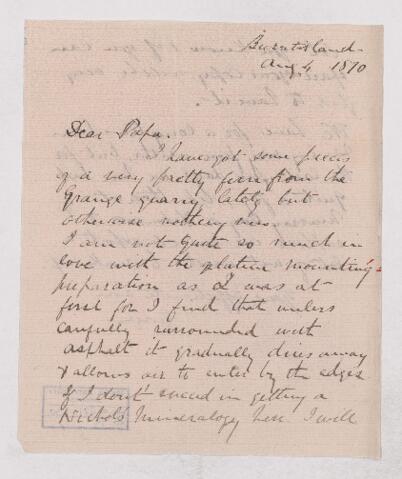 Burntisland
Aug 4 1870
Dear Papa
I have got some pieces
of a very pretty fern from the
Grange quarry lately but
otherwise nothing new
I am not quite so much in
love with the gelatine mounting
preparation as I was at
first for I find that unless
carefully surrounded with
asphalt it gradually dries away
& allows air to enter by the edges
If I don't succeed in getting a
Nichols Mineralogy here I will